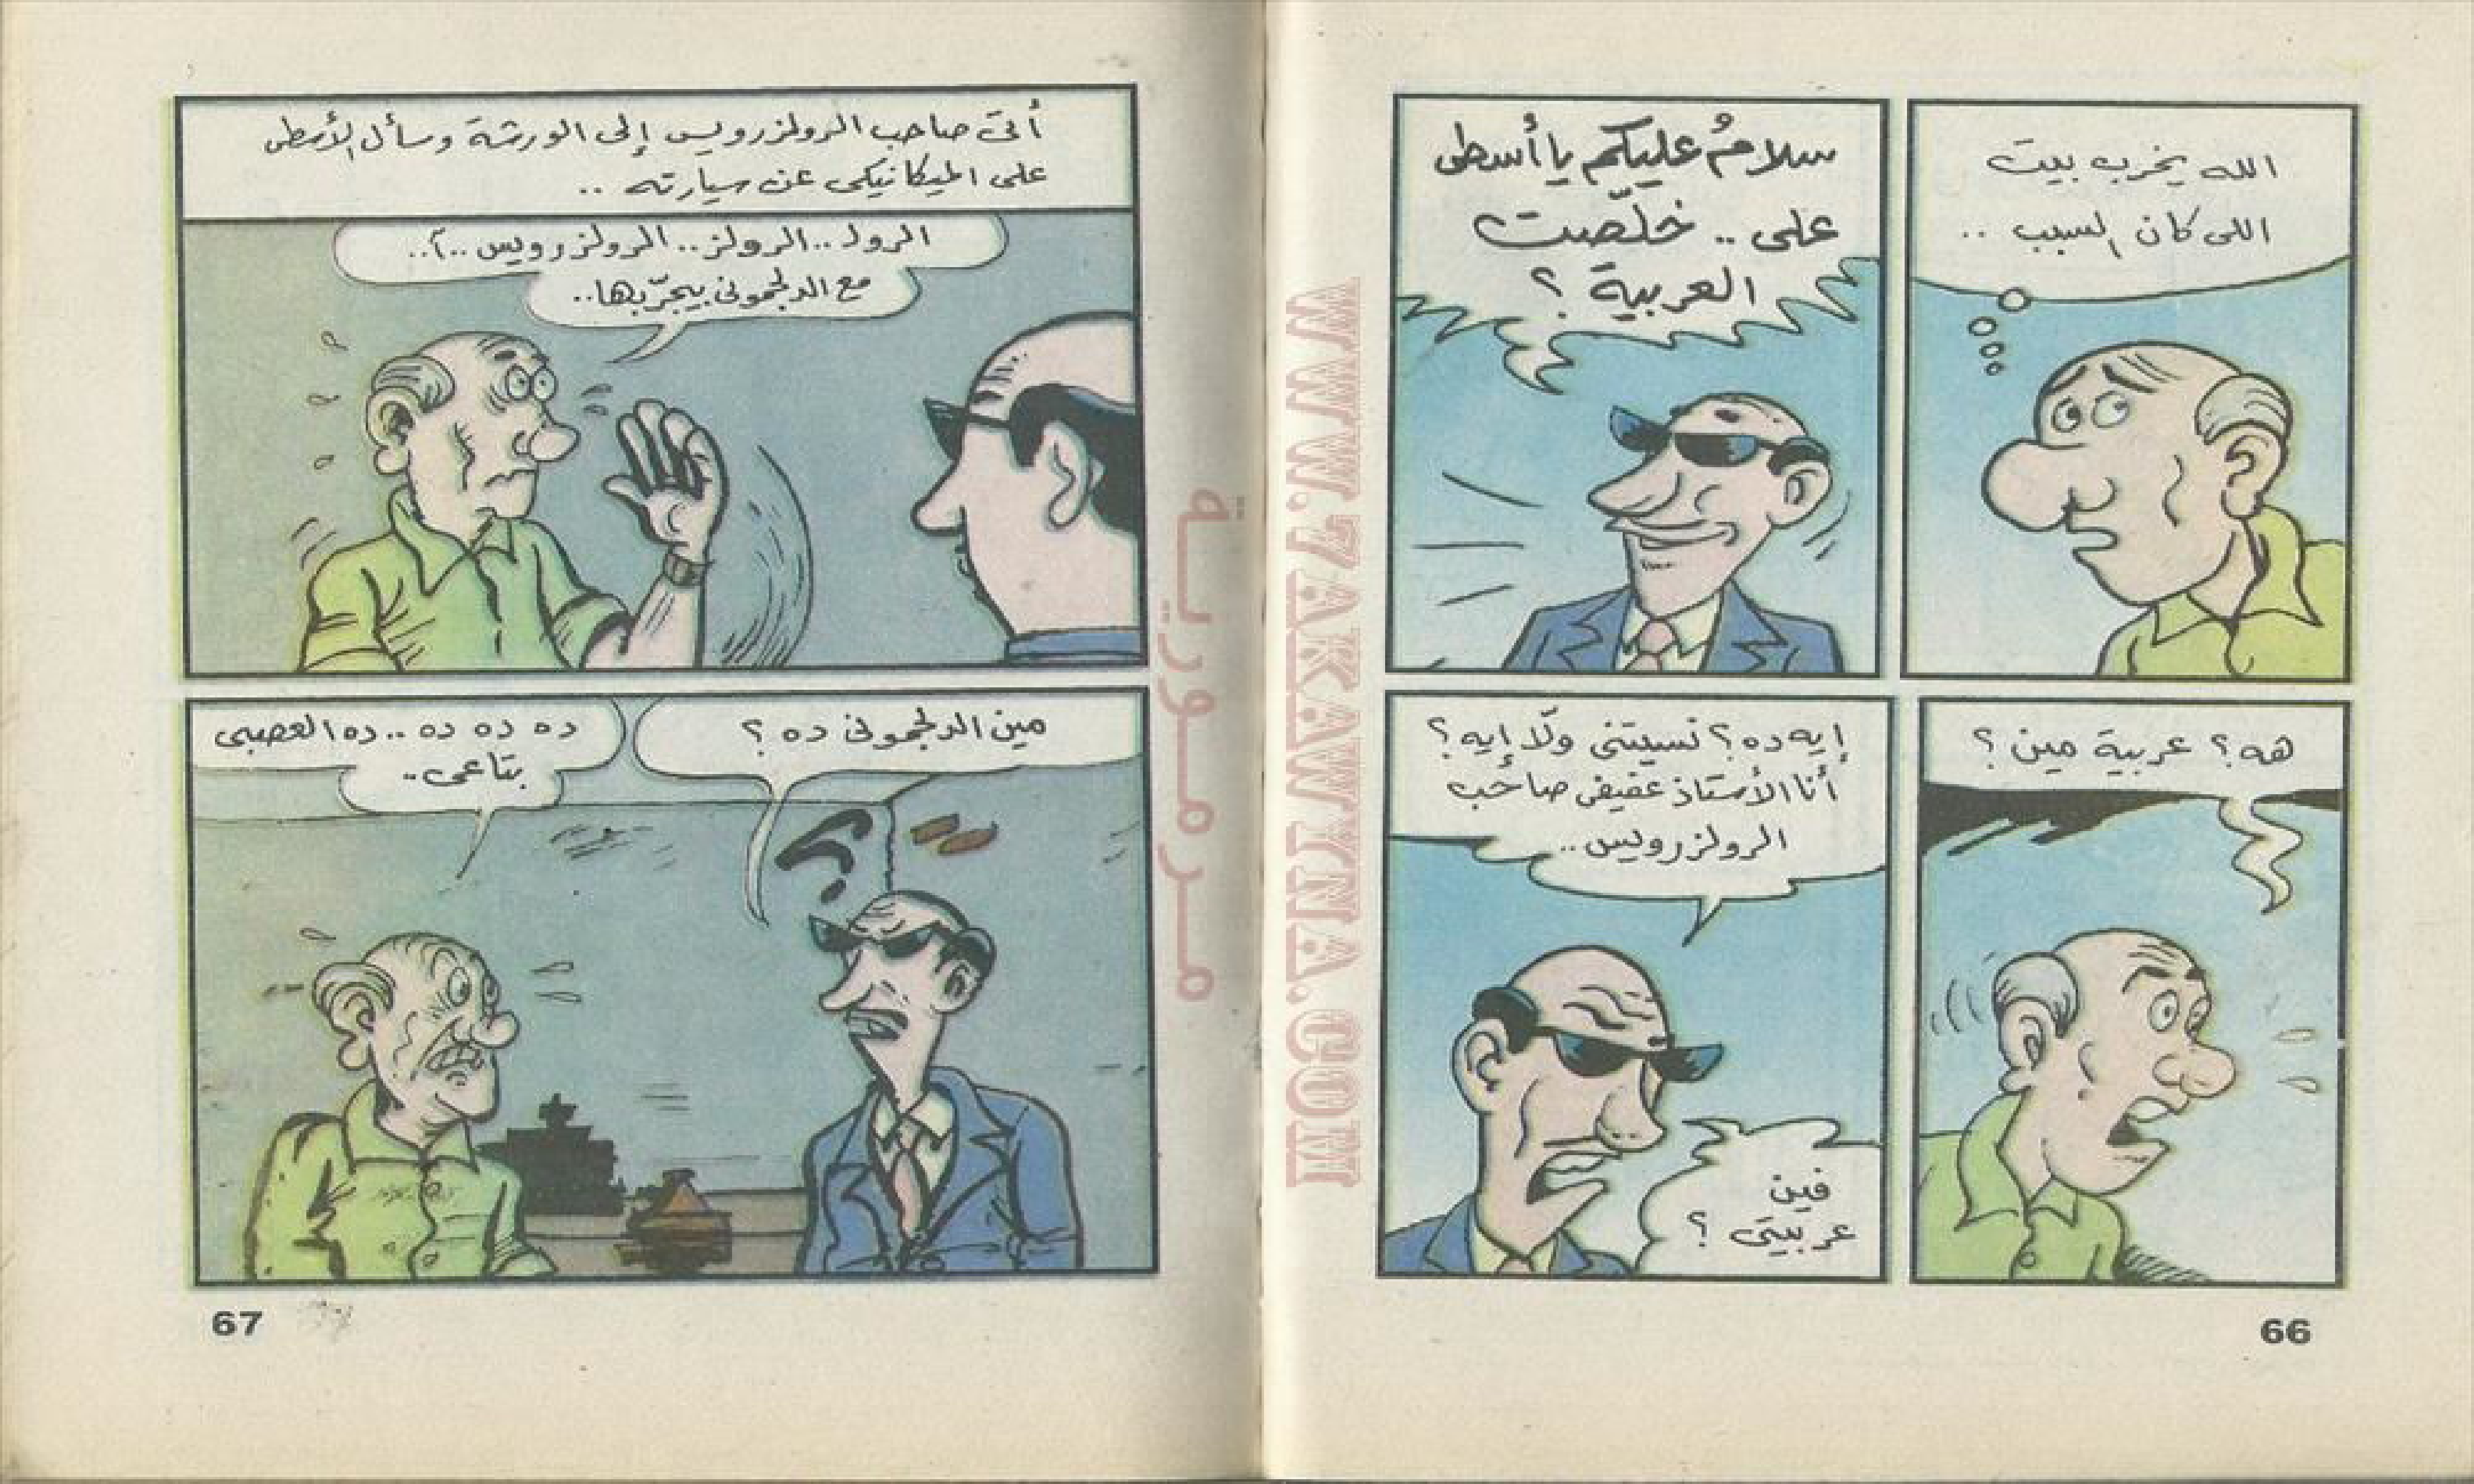 الله يخرب بيت
اللى كان السبب ..
سلامُ عليكم يا أسطى
على .. خلّصت
العربية ؟
هه ؟ عربية مين ؟
إيه ده ؟ نسيتنى ولّا إيه ؟
أنا الأستاذ عفيفى صاحب
الرولز رويس ..
فين
عربيتى ؟
66
أتى صاحب الرولز رويس إلى الورشة وسأل الأسطى
على الميكانيكى عن سيارته ..
الرول .. الرولز .. الرولز رويس .. آ ..
مع الدلجمونى بيجرّبها ..
مين الدلجمونى ده ؟
ده ده ده .. ده العصبى
بتاعى ..
67
مرمورية
WWW.ZAKAWINA.COM